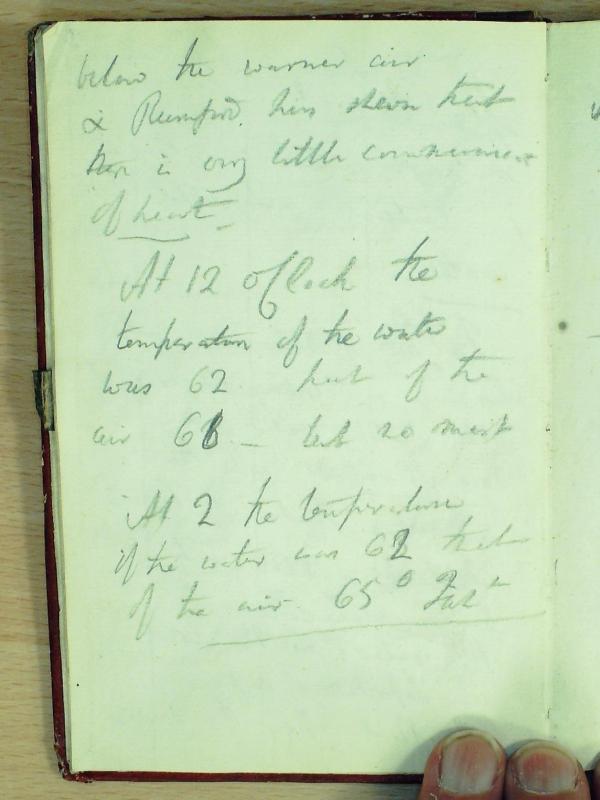 below the warmer air
& Rumford has shewn that
ther is very little communication
of heat
At 12 o Clock the
temperature of the water
was 62 heat of the
air 68 –
At 2 the temperature
of the water was 62 that
of the air 65° Fah